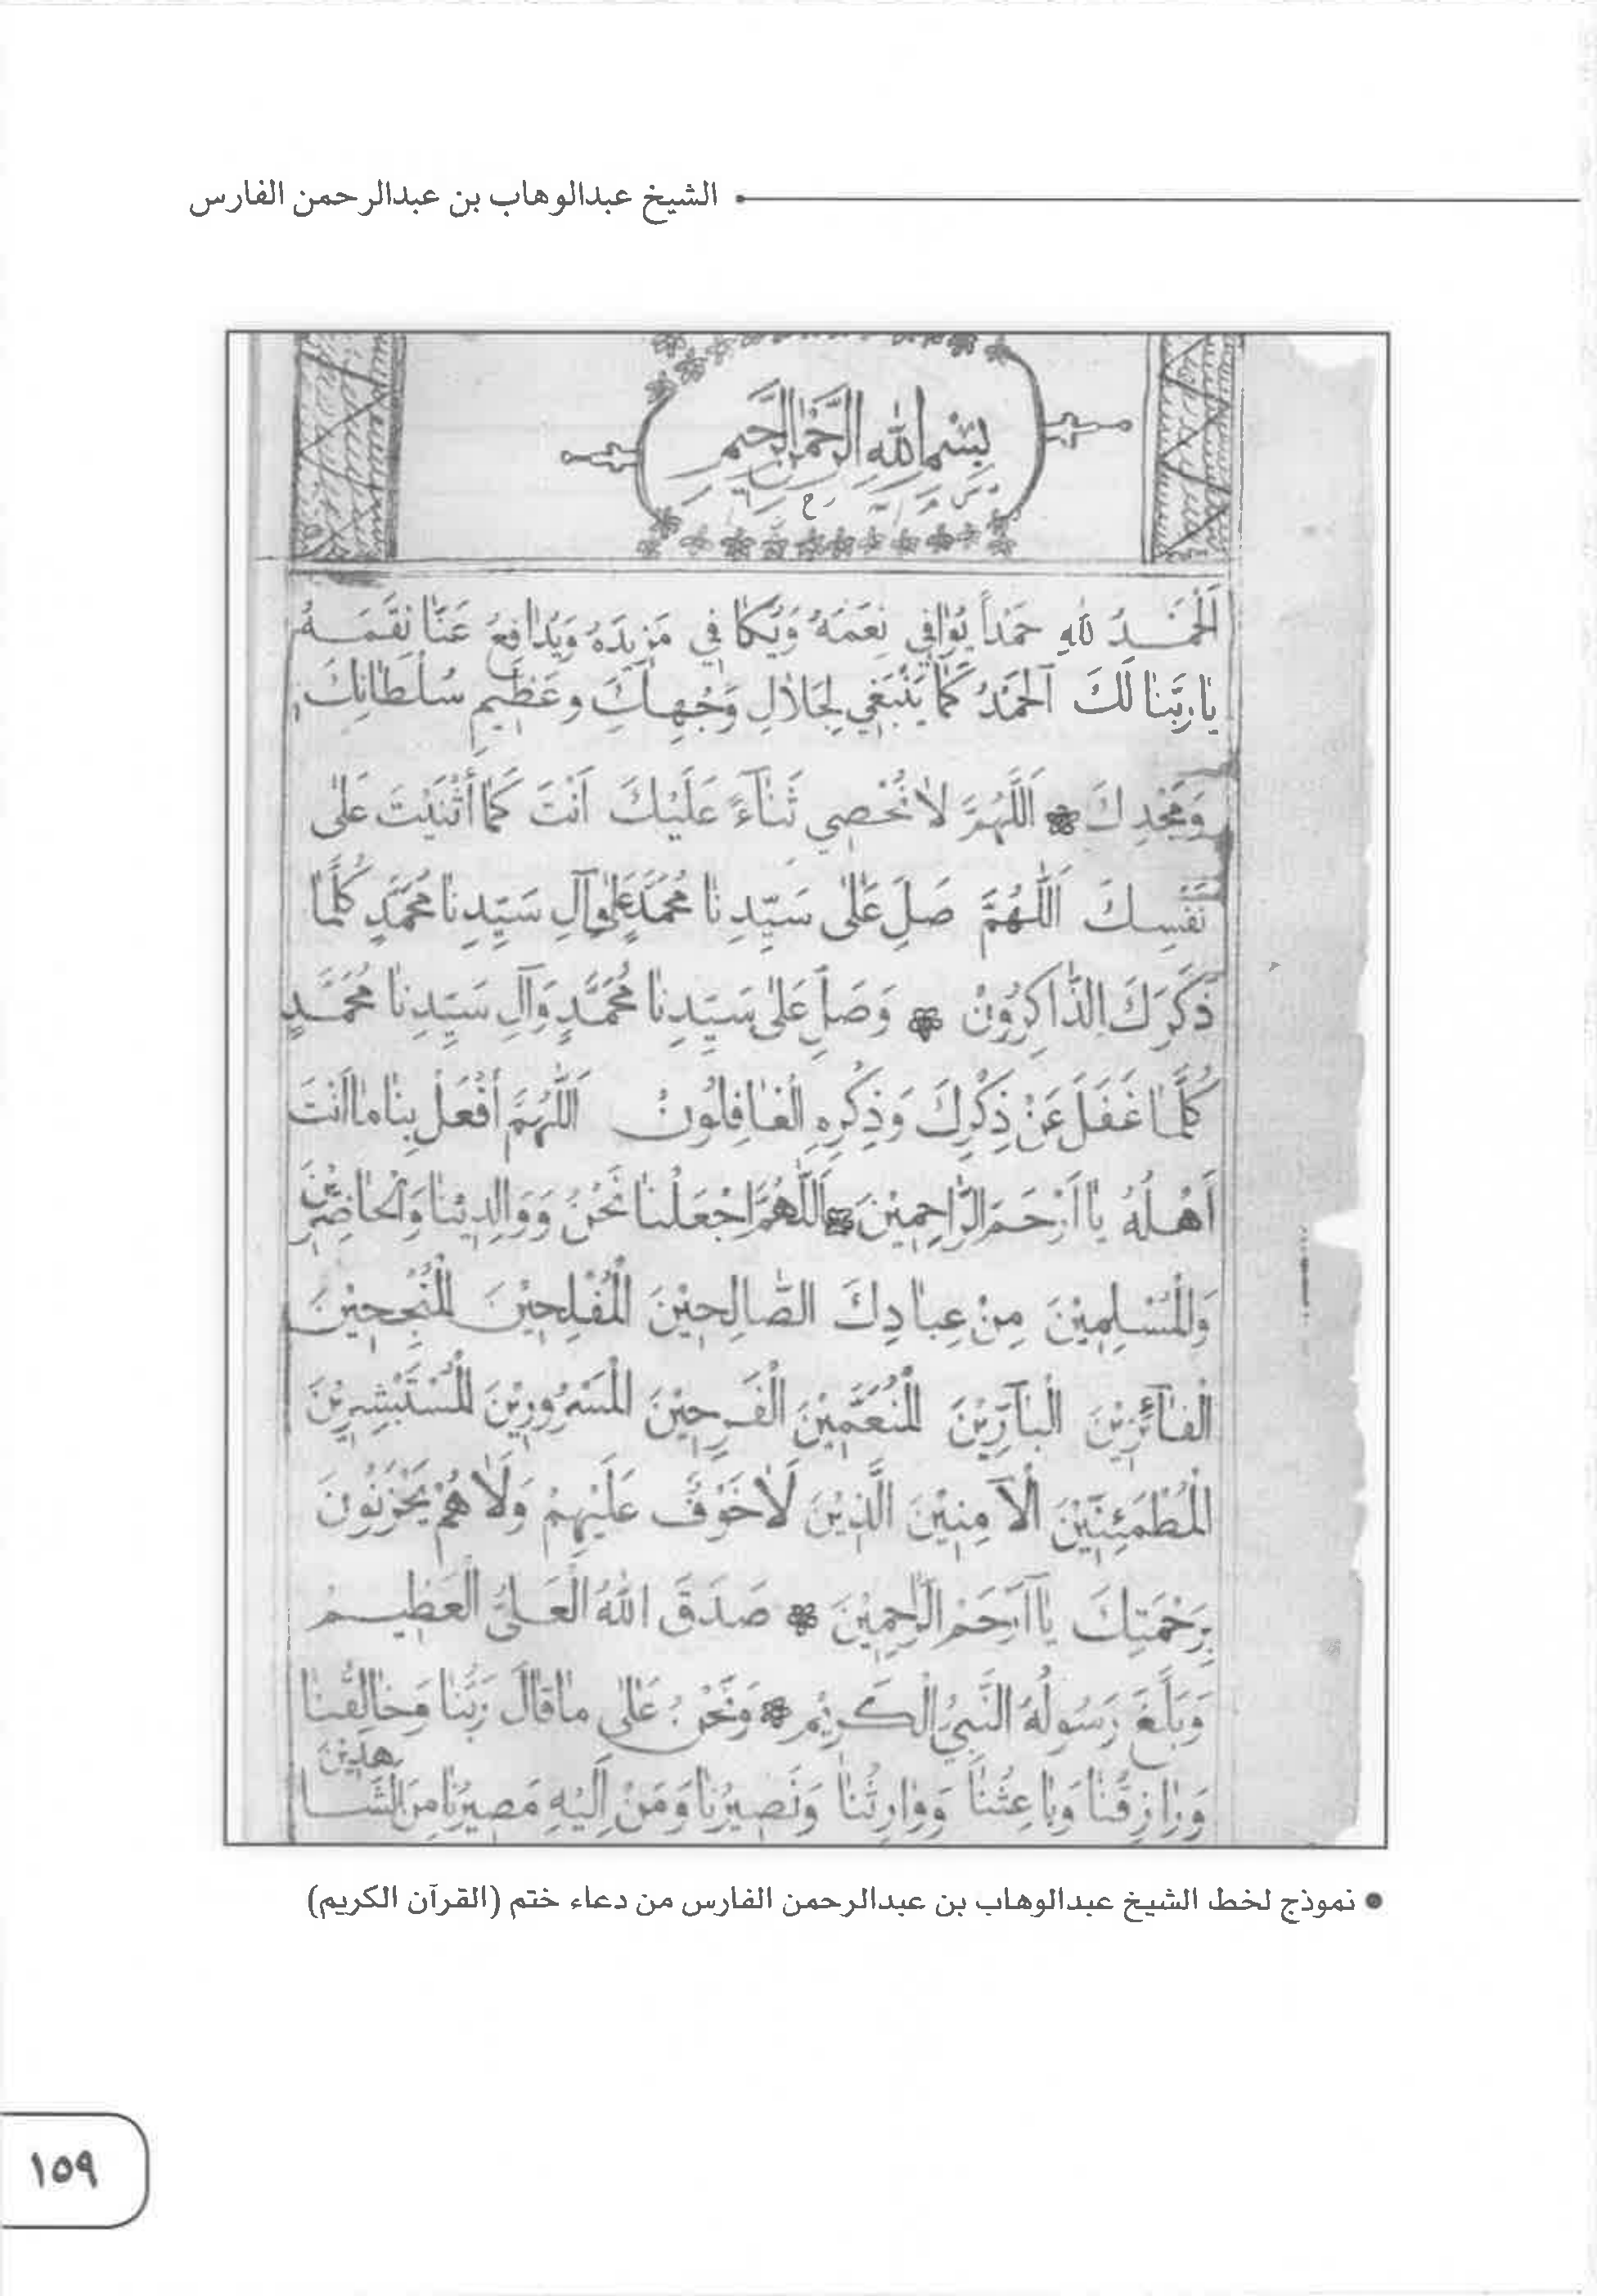 الشيخ عبدالوهاب بن عبدالرحمن الفارس
بِسْمِ اللهِ الرَّحْمٰنِ الرَّحِيمِ
اَلْحَمْدُ لِلّٰهِ حَمْداً يُوَافِي نِعَمَهُ وَيُكَافِي مَزِيدَهُ وَيُدَافِعُ عَنَّا نِقَمَهُ
يَا رَبَّنَا لَكَ اَلْحَمْدُ كَمَا يَنْبَغِي لِجَلَالِ وَجْهِكَ وَعَظِيمِ سُلْطَانِكَ
وَمَجْدِكَ اَللَّهُمَّ لَا نُحْصِي ثَنَآءً عَلَيْكَ اَنْتَ كَمَا أَثْنَيْتَ عَلىٰ
نَفْسِكَ اَللّٰهُمَّ صَلِ عَلٰى سَيِّدِنَا مُحَمَّدٍ وَعَلىٰ آلِ سَيِّدِنَا مُحَمَّدٍ كُلَّمَا
ذَكَرَكَ الذَّاكِرُوْنَ وَصَلِ عَلىٰ سَيِّدِنَا مُحَمَّدٍ وَآلِ سَيِّدِنَا مُحَمَّدٍ
كُلَّمَا غَفَلَ عَنْ ذِكْرِكَ وَذِكْرِهِ الْغَافِلُوْنَ اَللَّهُمَّ أفْعَلْ بِنَا مَا اَنْتَ
اَهْلُهُ يَا اَرْحَمَ الرَّاحِمِيْنَ اَللّٰهُمَّ اجْعَلْنَا نَحْنُ وَوَالِدِيْنَا وَالْحَاضِرِيْنَ
وَالْمُسْلِمِيْنَ مِنْ عِبَادِكَ الصَّالِحِيْنَ الْمُفْلِحِيْنَ الْمُنْجِحِيْنَ
الْفَآئِزِيْنَ الْبَآرِّيْنَ الْمُنْعَمِّيْنَ الْفَرِحِيْنَ الْمَسْرُوْرِيْنَ الْمُسْتَبْشِرِيْنَ
الْمُطْمَئِنِّيْنَ الْآمِنِيْنَ الَّذِيْنَ لَا خَوْفٌ عَلَيْهِمْ وَلَا هُمْ يَحْزَنُوْنَ
بِرَحْمَتِكَ يَا آرْحَمَ الرَّاحِمِيْنَ صَدَقَ اللهُ الْعَلِيُّ الْعَظِيمُ
وَبَلَّغَ رَسُوْلُهُ النَّبِيُّ الْكَرِيْم وَنَحْنُ عَلٰى مَا قَالَ رَبُّنَا وَخَالِقُنَا
وَرَازِقُنَا وَبَاعِثُنَا وَوَارِثُنَا وَنَصِيْرُنَا وَمَنْ اِلَيْهِ مَصِيْرُنَا مِنَ الشَّاهِدِيْنَ
• نموذج لخط الشيخ عبدالوهاب بن عبدالرحمن الفارس من دعاء ختم (القرآن الكريم)
١٥٩